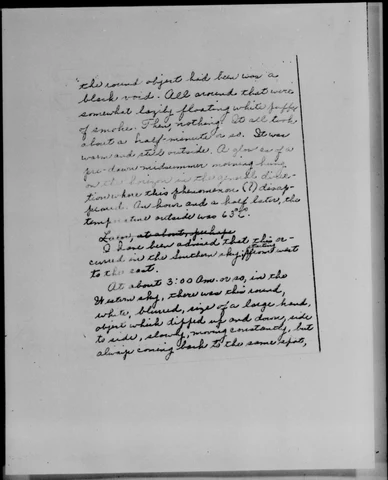 "the round object had been was a
black void. All around that were
somewhat lazily floating white puffs
of smoke. Then, nothing. It all took
about a half-minute or so. It was
warm and still outside. A glow as of a
pre-dawn midsummer morning hung
on the horizon in the general direc-
tion where this phenomenon (?) disap-
peared. An hour and a half later, the
temperature outside was 63°
Later, at about, perhaps
I have been advised that this oc-
curred in the Southern sky, from west
to the east.
At about 3:00 A.m. or so, in the
Western sky, there was this round,
white, blurred, size of a large hand,
object which dipped up and down, side
to side, slowly, moving constantly, but
always coming back to the same spot,